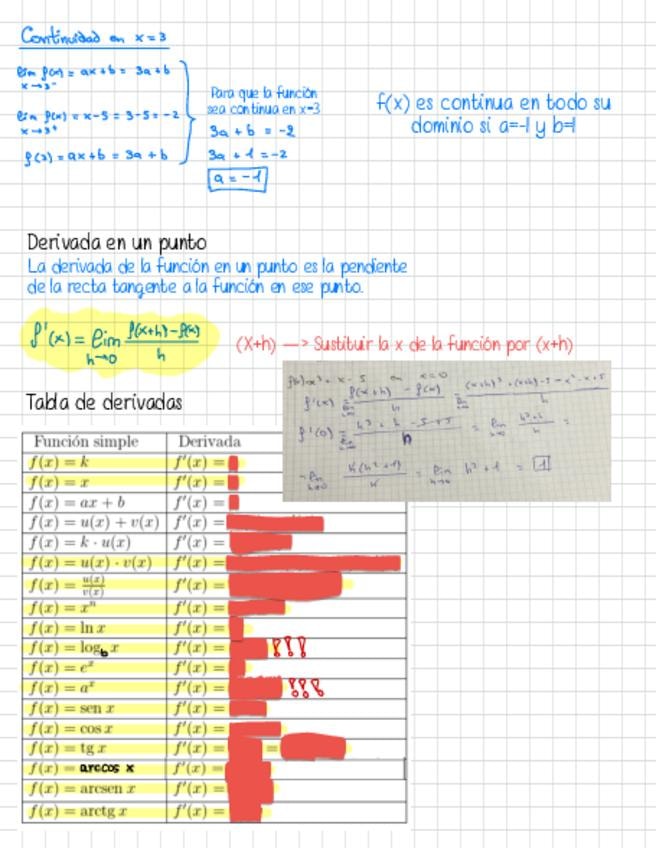 Continuidad en x=3
lim f(x) = ax+b = 3a+b
x→3⁻
lim f(x) = x-5 = 3-5 = -2
x→3⁺
f(3) = ax+b = 3a+b
Para que la función
sea continua en x=3
3a + b = -2
3a + 1 = -2
a = -1
f(x) es continua en todo su
dominio si a=-1 y b=1
Derivada en un punto
La derivada de la función en un punto es la pendiente
de la recta tangente a la función en ese punto.
f'(x) = lim f(x+h)-f(x) / h
h→0
(x+h) —> Sustituir la x de la función por (x+h)
Tabla de derivadas
Función simple Derivada
f(x) = k f'(x) =
f(x) = x f'(x) =
f(x) = ax + b f'(x) =
f(x) = u(x) + v(x) f'(x) =
f(x) = k · u(x) f'(x) =
f(x) = u(x) · v(x) f'(x) =
f(x) = u(x)/v(x) f'(x) =
f(x) = xⁿ f'(x) =
f(x) = ln x f'(x) =
f(x) = log_b x f'(x) = !!!
f(x) = eˣ f'(x) =
f(x) = aˣ f'(x) = !!!
f(x) = sen x f'(x) =
f(x) = cos x f'(x) =
f(x) = tg x f'(x) = =
f(x) = arccos x f'(x) =
f(x) = arcsen x f'(x) =
f(x) = arctg x f'(x) =